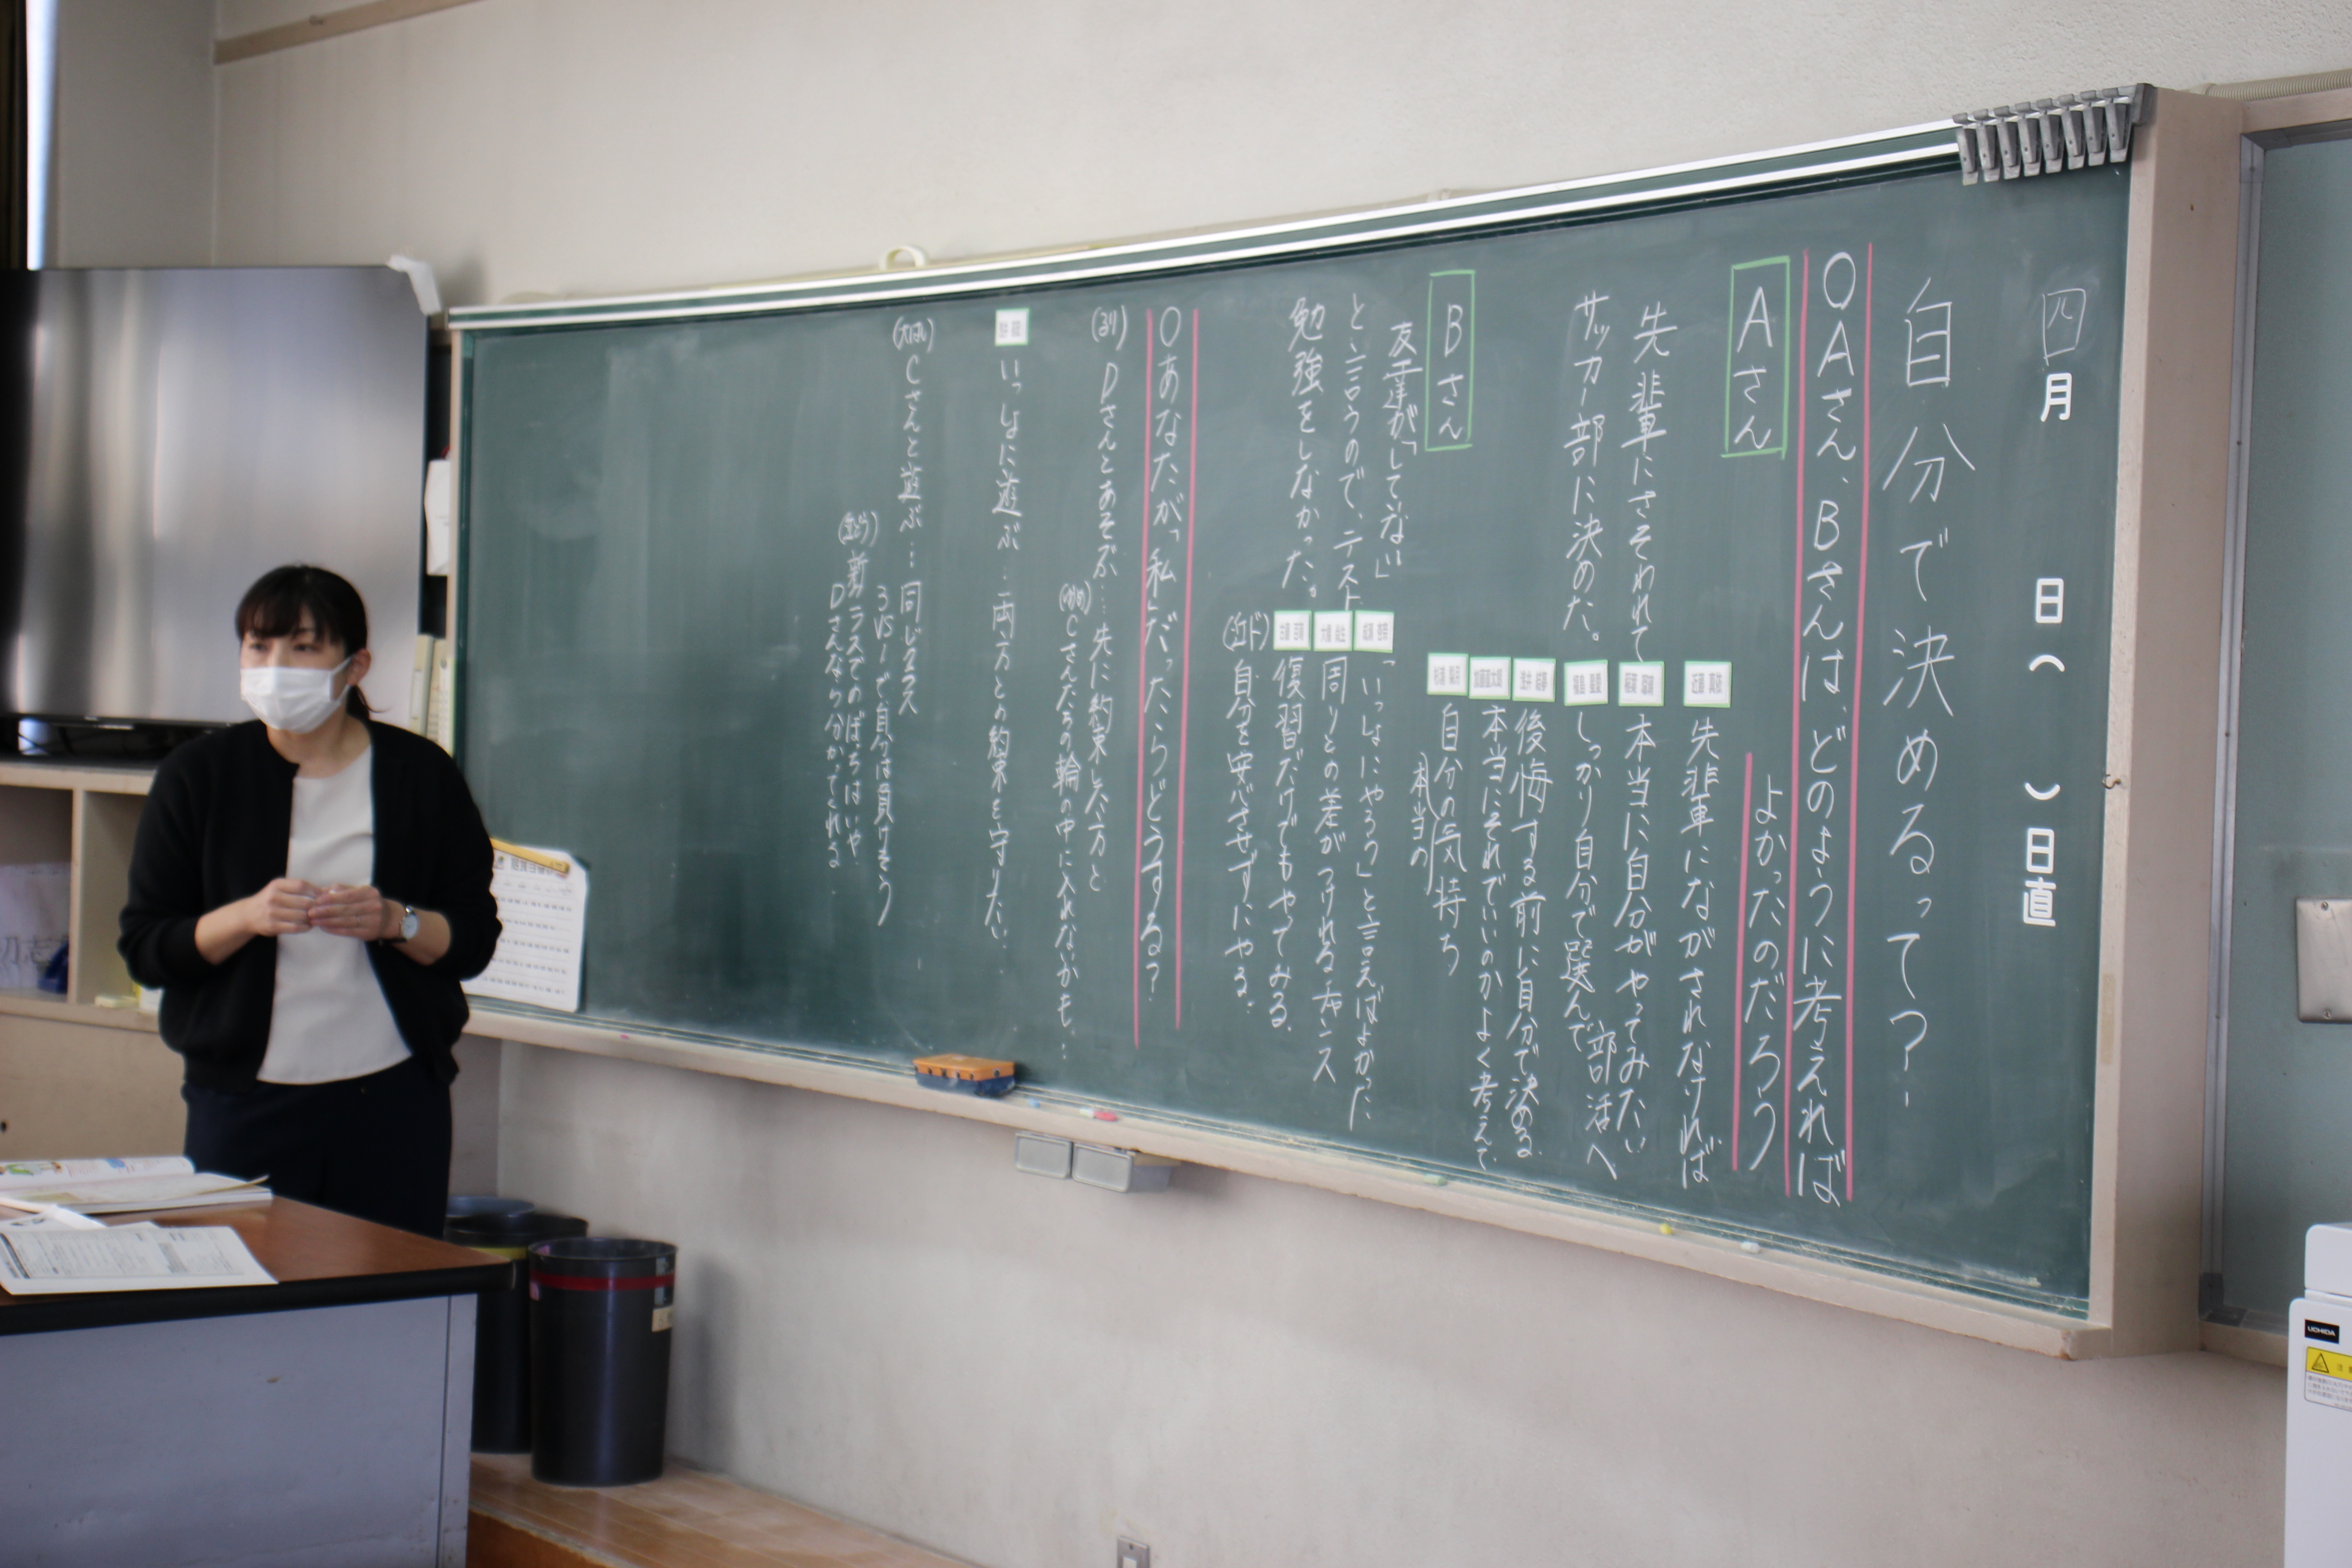 四月 日( )日直
自分で決めるって?
○Aさん、Bさんは、どのように考えれば
よかったのだろう
Aさん
先輩にさそわれて
サッカー部に決めた。
先輩にながされなければ
本当に自分がやってみたい
部活へ
しっかり自分で選んで
後悔する前に自分で決める
本当にそれでいいのかよく考えて
自分の気持ち
本当の
Bさん
友達が「してない」
と言うので、テスト
勉強をしなかった。
「いっしょにやろう」と言えばよかった
周りとの差がつけれるチャンス
復習だけでもやってみる。
自分を安心させずにやる。
○あなたが、私だったらどうする?
(るり) Dさんとあそぶ…先に約束した方と
Cさんたちの輪の中に入れないかも…
いっしょに遊ぶ…両方との約束を守りたい。
Cさんと遊ぶ…同じクラス
3VS1で自分は負けそう
新クラスでのぼっちはいや
Dさんなら分かってくれる
UCHIDA